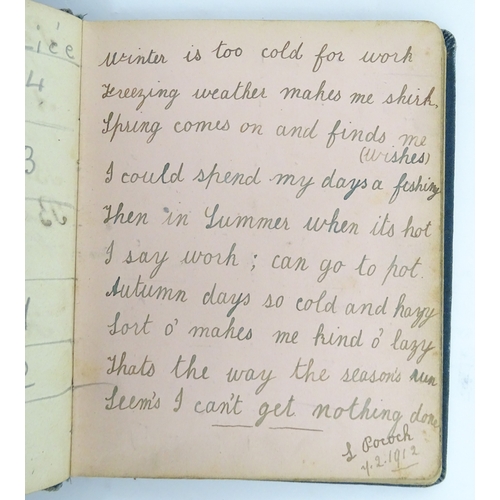 ice
4
3
Winter is too cold for work
Freezing weather makes me shirk
Spring comes on and finds me
(wishes)
I could spend my days a fishing
Then in Summer when its hot
I say work; can go to pot.
Autumn days so cold and hazy
Sort o' makes me kind o' lazy
Thats the way the season's run
Seem's I can't get nothing done
L Pocock
4.2.1912